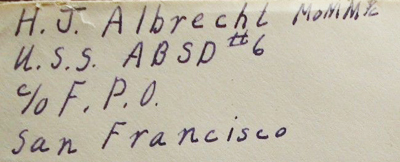 H. J. Albrecht MoMM ½
U.S.S. ABSD #6
c/o F.P.O.
San Francisco